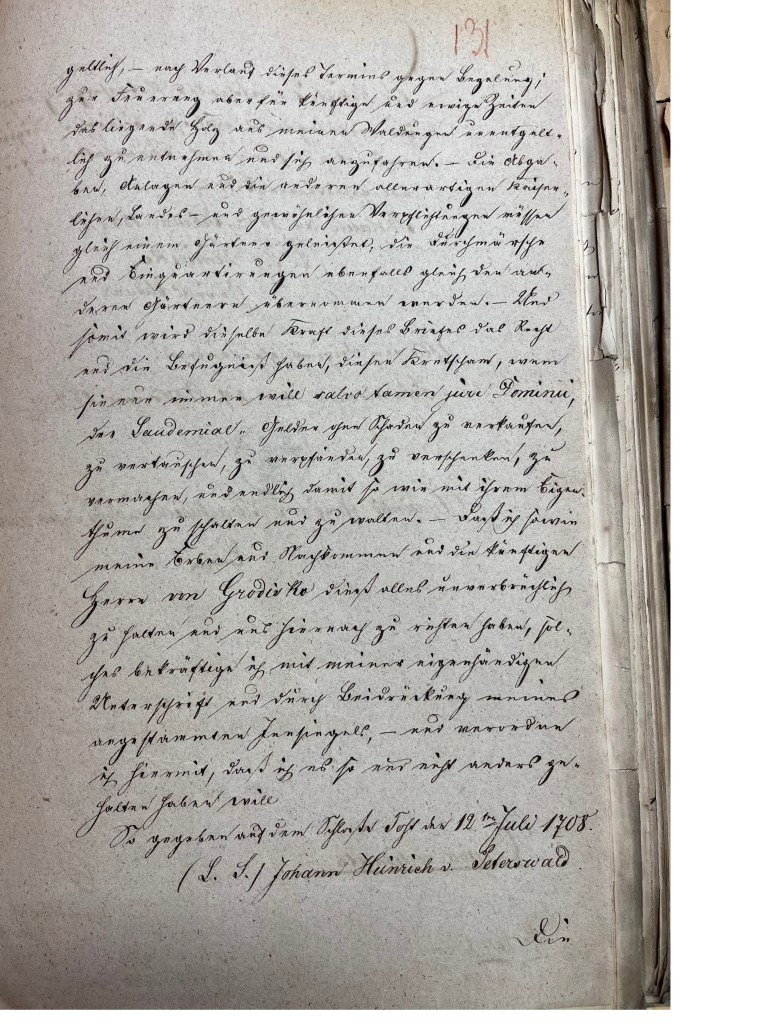 131
geltlich, – nach Verlauf dieses Termins gegen Bezalung;
zur Feuerung aber für künftige und ewige Zeiten
das liegende Holz aus meinen Waldungen unentgelt-
lich zu entnehmen und sich anzufahren. – Die Abga-
ben, Anlagen und die anderen allerartigen Kaiser-
lichen, Landes – und gewöhnlichen Verpflichtungen müssen
gleich einem Gärtner geleistet, die Durchmärsche
und Einquartirungen ebenfalls gleich den an-
deren Gärtnern übernommen werden. – Und
somit wird dieselbe Kraft dieses Briefes das Recht
und die Befugniß haben, diesen Kretscham, wem
sie nur immer will salvo tamen jure Dominii,
der Laudemial-Gelder ohne Schaden zu verkaufen,
zu vertauschen, zu verpfänden, zu verschenken, zu
vermachen, und endlich damit so wie mit ihrem Eigen-
thume zu schalten und zu walten. – Daß ich sowie
meine Erben und Nachkommen und die künftigen
Herrn von Grodisko dieß alles unverbrüchlich
zu halten und uns hiernach zu richten haben, sol-
ches bekräftige ich mit meiner eigenhändigen
Unterschrift und durch Beidrückung meines
angestammten Innsiegels, – und verordne
ich hiermit, daß ich es so und nicht anders ge-
halten haben will
So gegeben auf dem Schloße Tost den 12ten Juli 1708.
(L. S.) Johann Heinrich v. Peterswald
Die